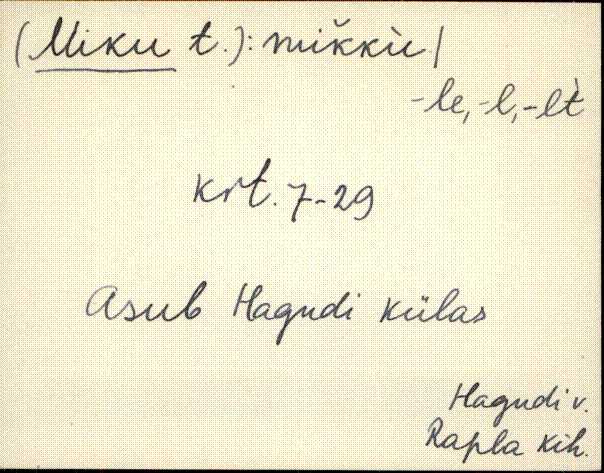 (Miku t.): mik̆kù|
-le, -l, -lt̀
krt. 7-29
Asub Hagudi külas
Hagudi v.
Rapla kih.